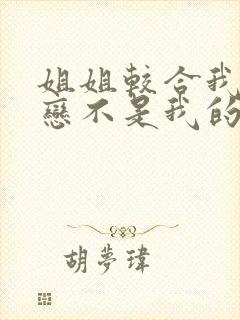 姐姐較合我
戀不是我的
胡夢瑋